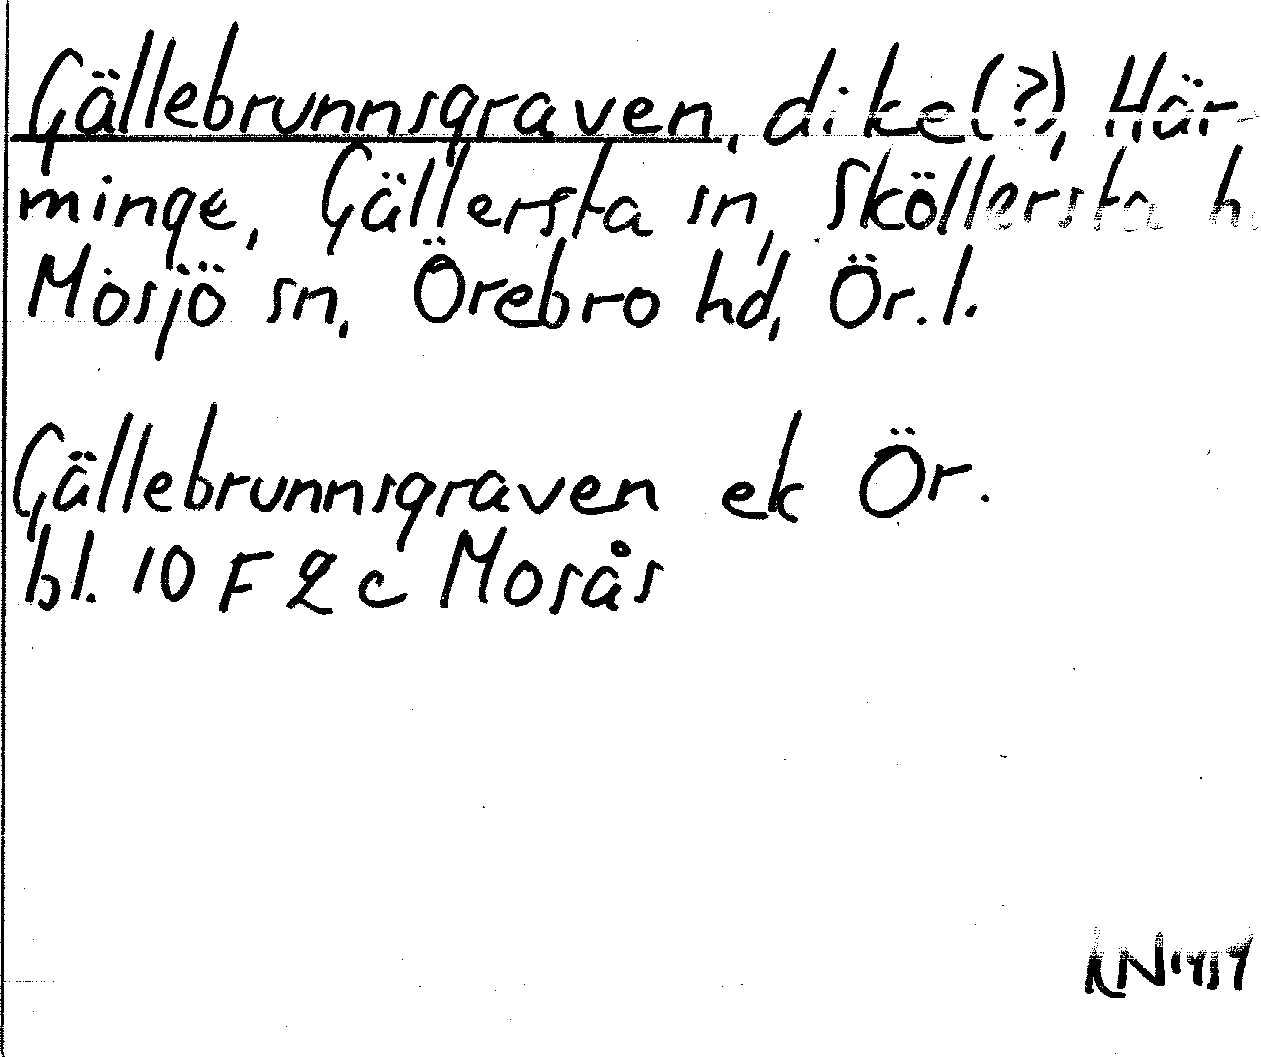 Gällebrunnsgraven, dike(?), Här-
minge, Gällersta sn, Sköllersta h.
Mosjö sn, Örebro hd, Ör. l.
Gällebrunnsgraven ek Ör.
bl. 10 F 2 c Mosås